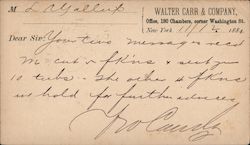 M L A Gallup
WALTER CARR & COMPANY,
Office, 190 Chambers, corner Washington St.
New York 11/15 1884
Dear Sir: Your two messages recd
We cut fkins & sent you
10 tubs. The other 4 fkins
we hold for further advices